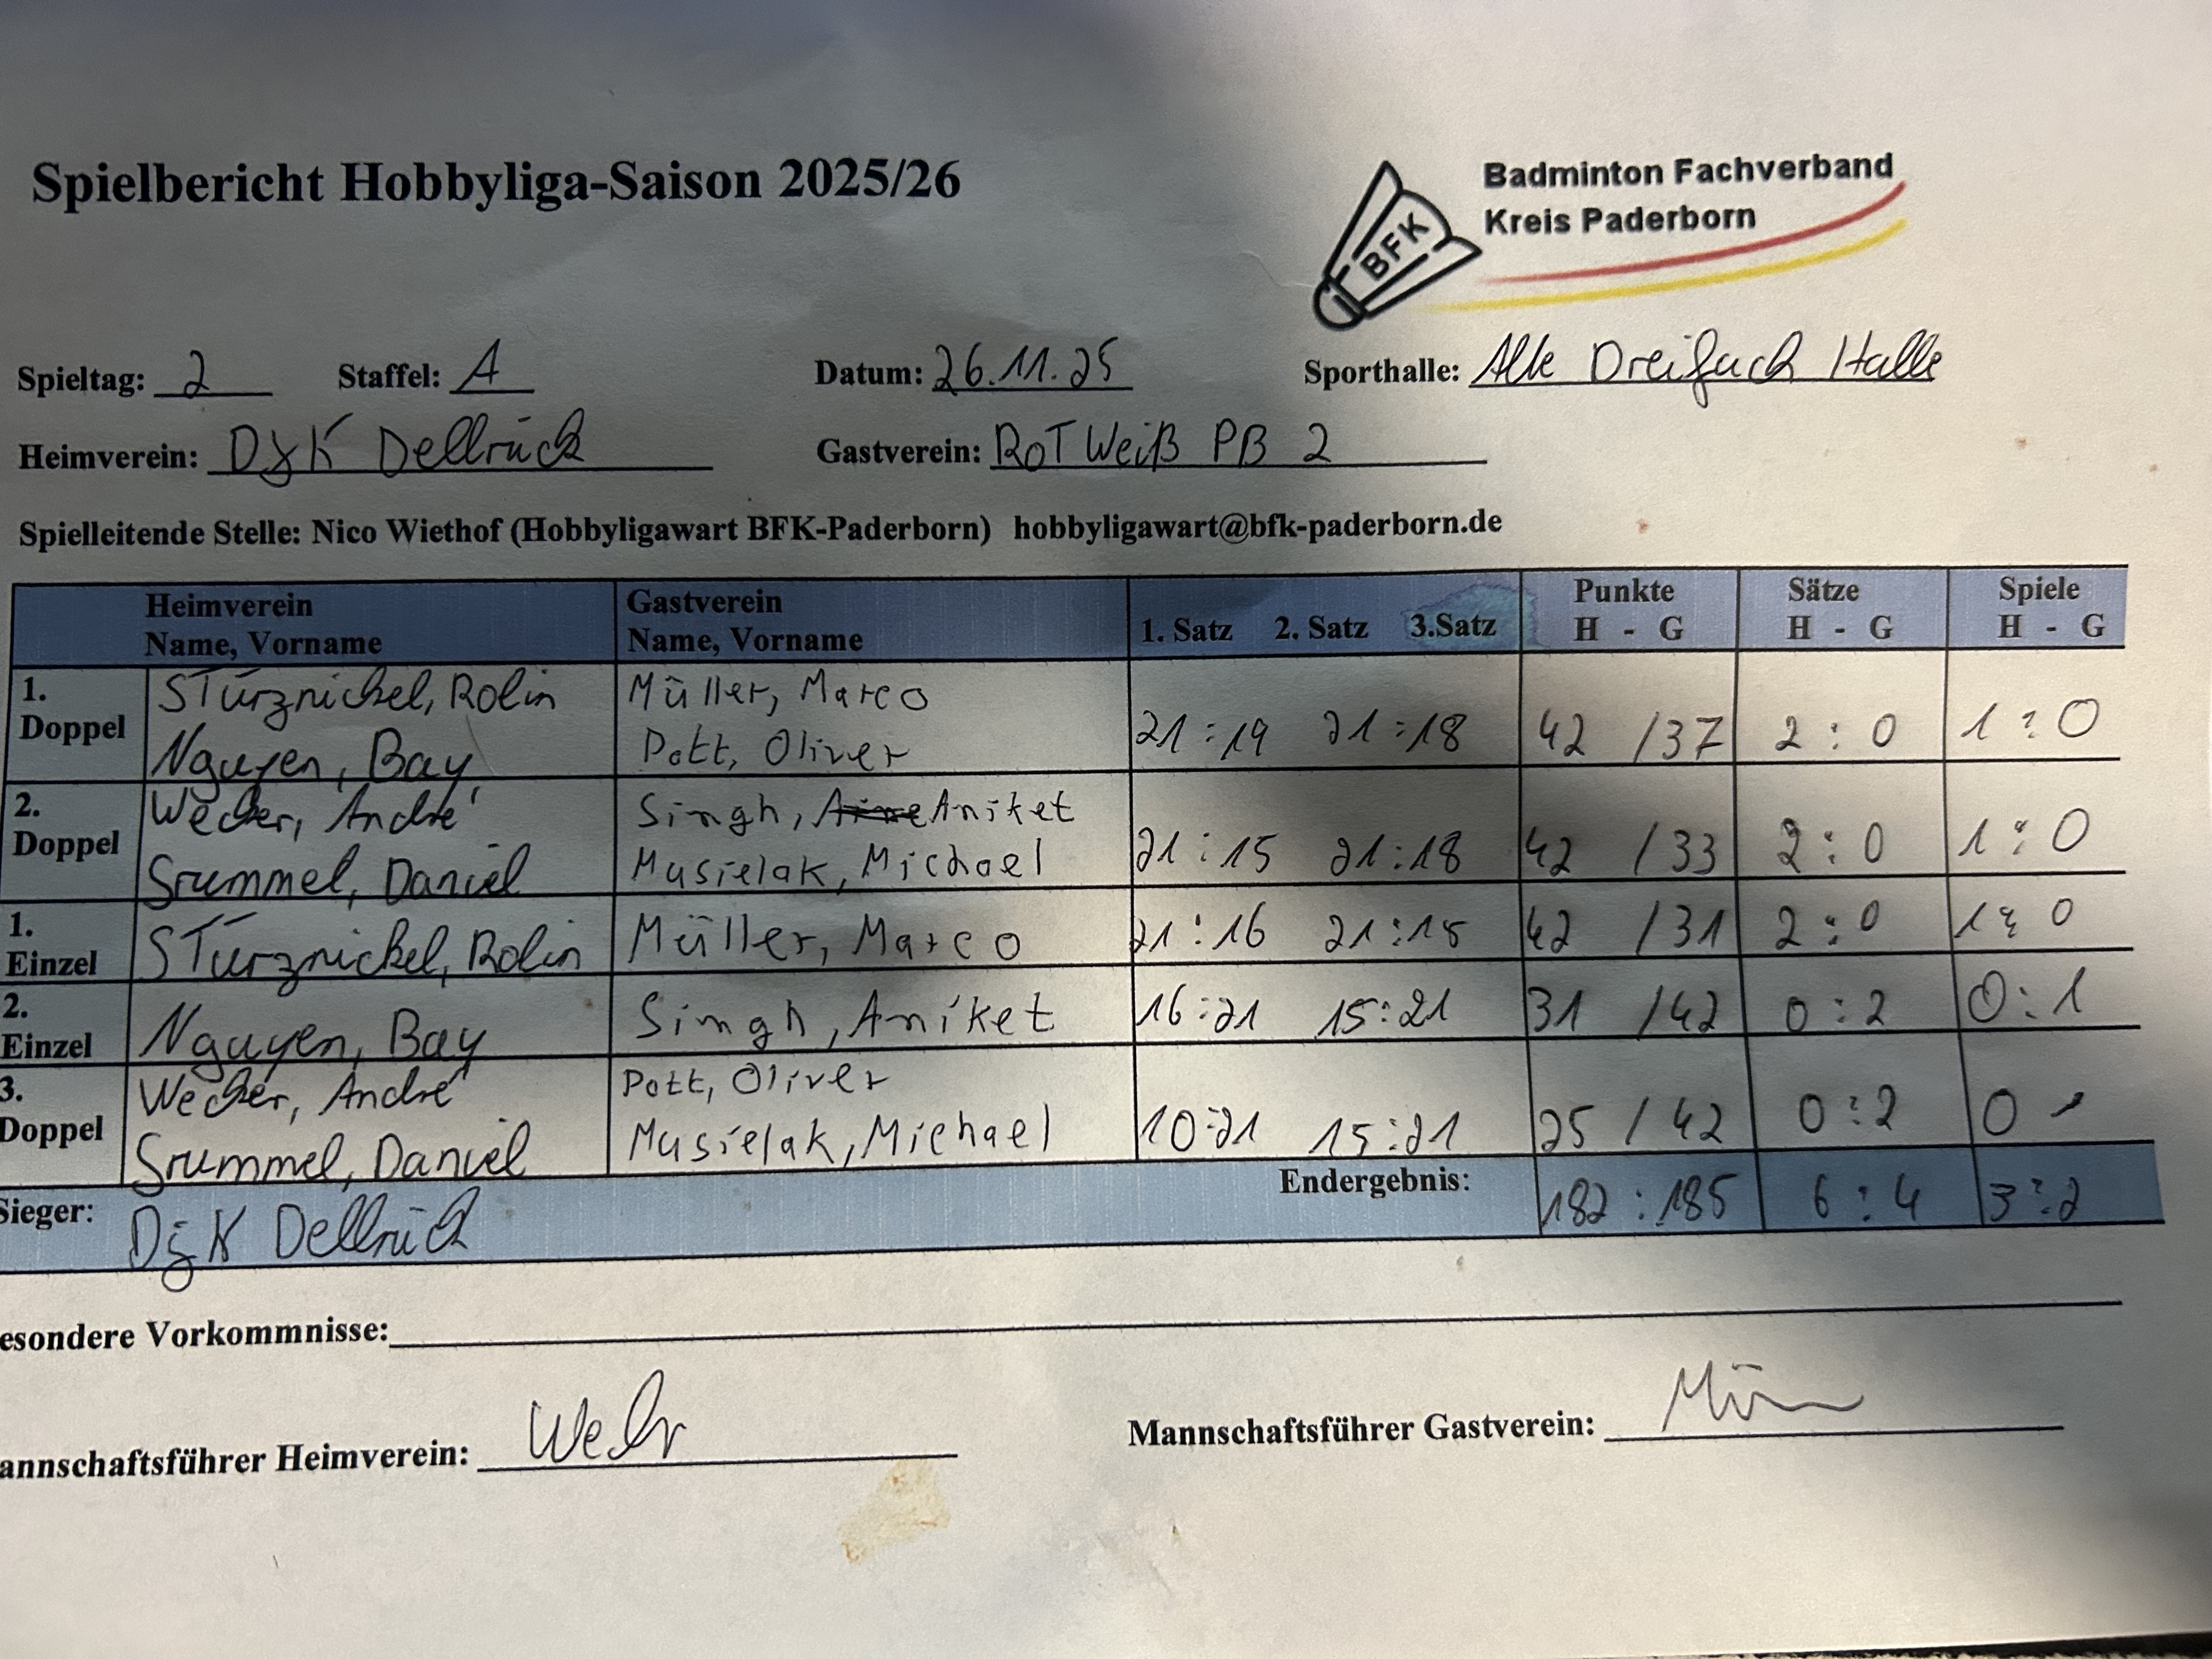 Spielbericht Hobbyliga-Saison 2025/26
Badminton Fachverband
Kreis Paderborn
BFK
Spieltag: 2 Staffel: A Datum: 26.11.25 Sporthalle: Alte Dreifach Halle
Heimverein: DJK Dellrück Gastverein: Rot Weiß PB 2
Spielleitende Stelle: Nico Wiethof (Hobbyligawart BFK-Paderborn) hobbyligawart@bfk-paderborn.de
Heimverein Gastverein Punkte Sätze Spiele
Name, Vorname Name, Vorname 1. Satz 2. Satz 3.Satz H - G H - G H - G
1. Sturznickel, Robin Müller, Marco
Doppel Nguyen, Bay Pott, Oliver 21:19 21:18 42 /37 2:0 1:0
2. Wecker, André Singh, Aniket
Doppel Srummel, Daniel Musielak, Michael 21:15 21:18 42 /33 2:0 1:0
1. Einzel Sturznickel, Robin Müller, Marco 21:16 21:15 42 /31 2:0 1:0
2. Einzel Nguyen, Bay Singh, Aniket 16:21 15:21 31 /42 0:2 0:1
3. Wecker, André Pott, Oliver
Doppel Srummel, Daniel Musielak, Michael 10:21 15:21 25 / 42 0:2 0
Sieger: DJK Dellrück Endergebnis: 182:185 6:4 3:2
esondere Vorkommnisse:
annschaftsführer Heimverein: Mannschaftsführer Gastverein: